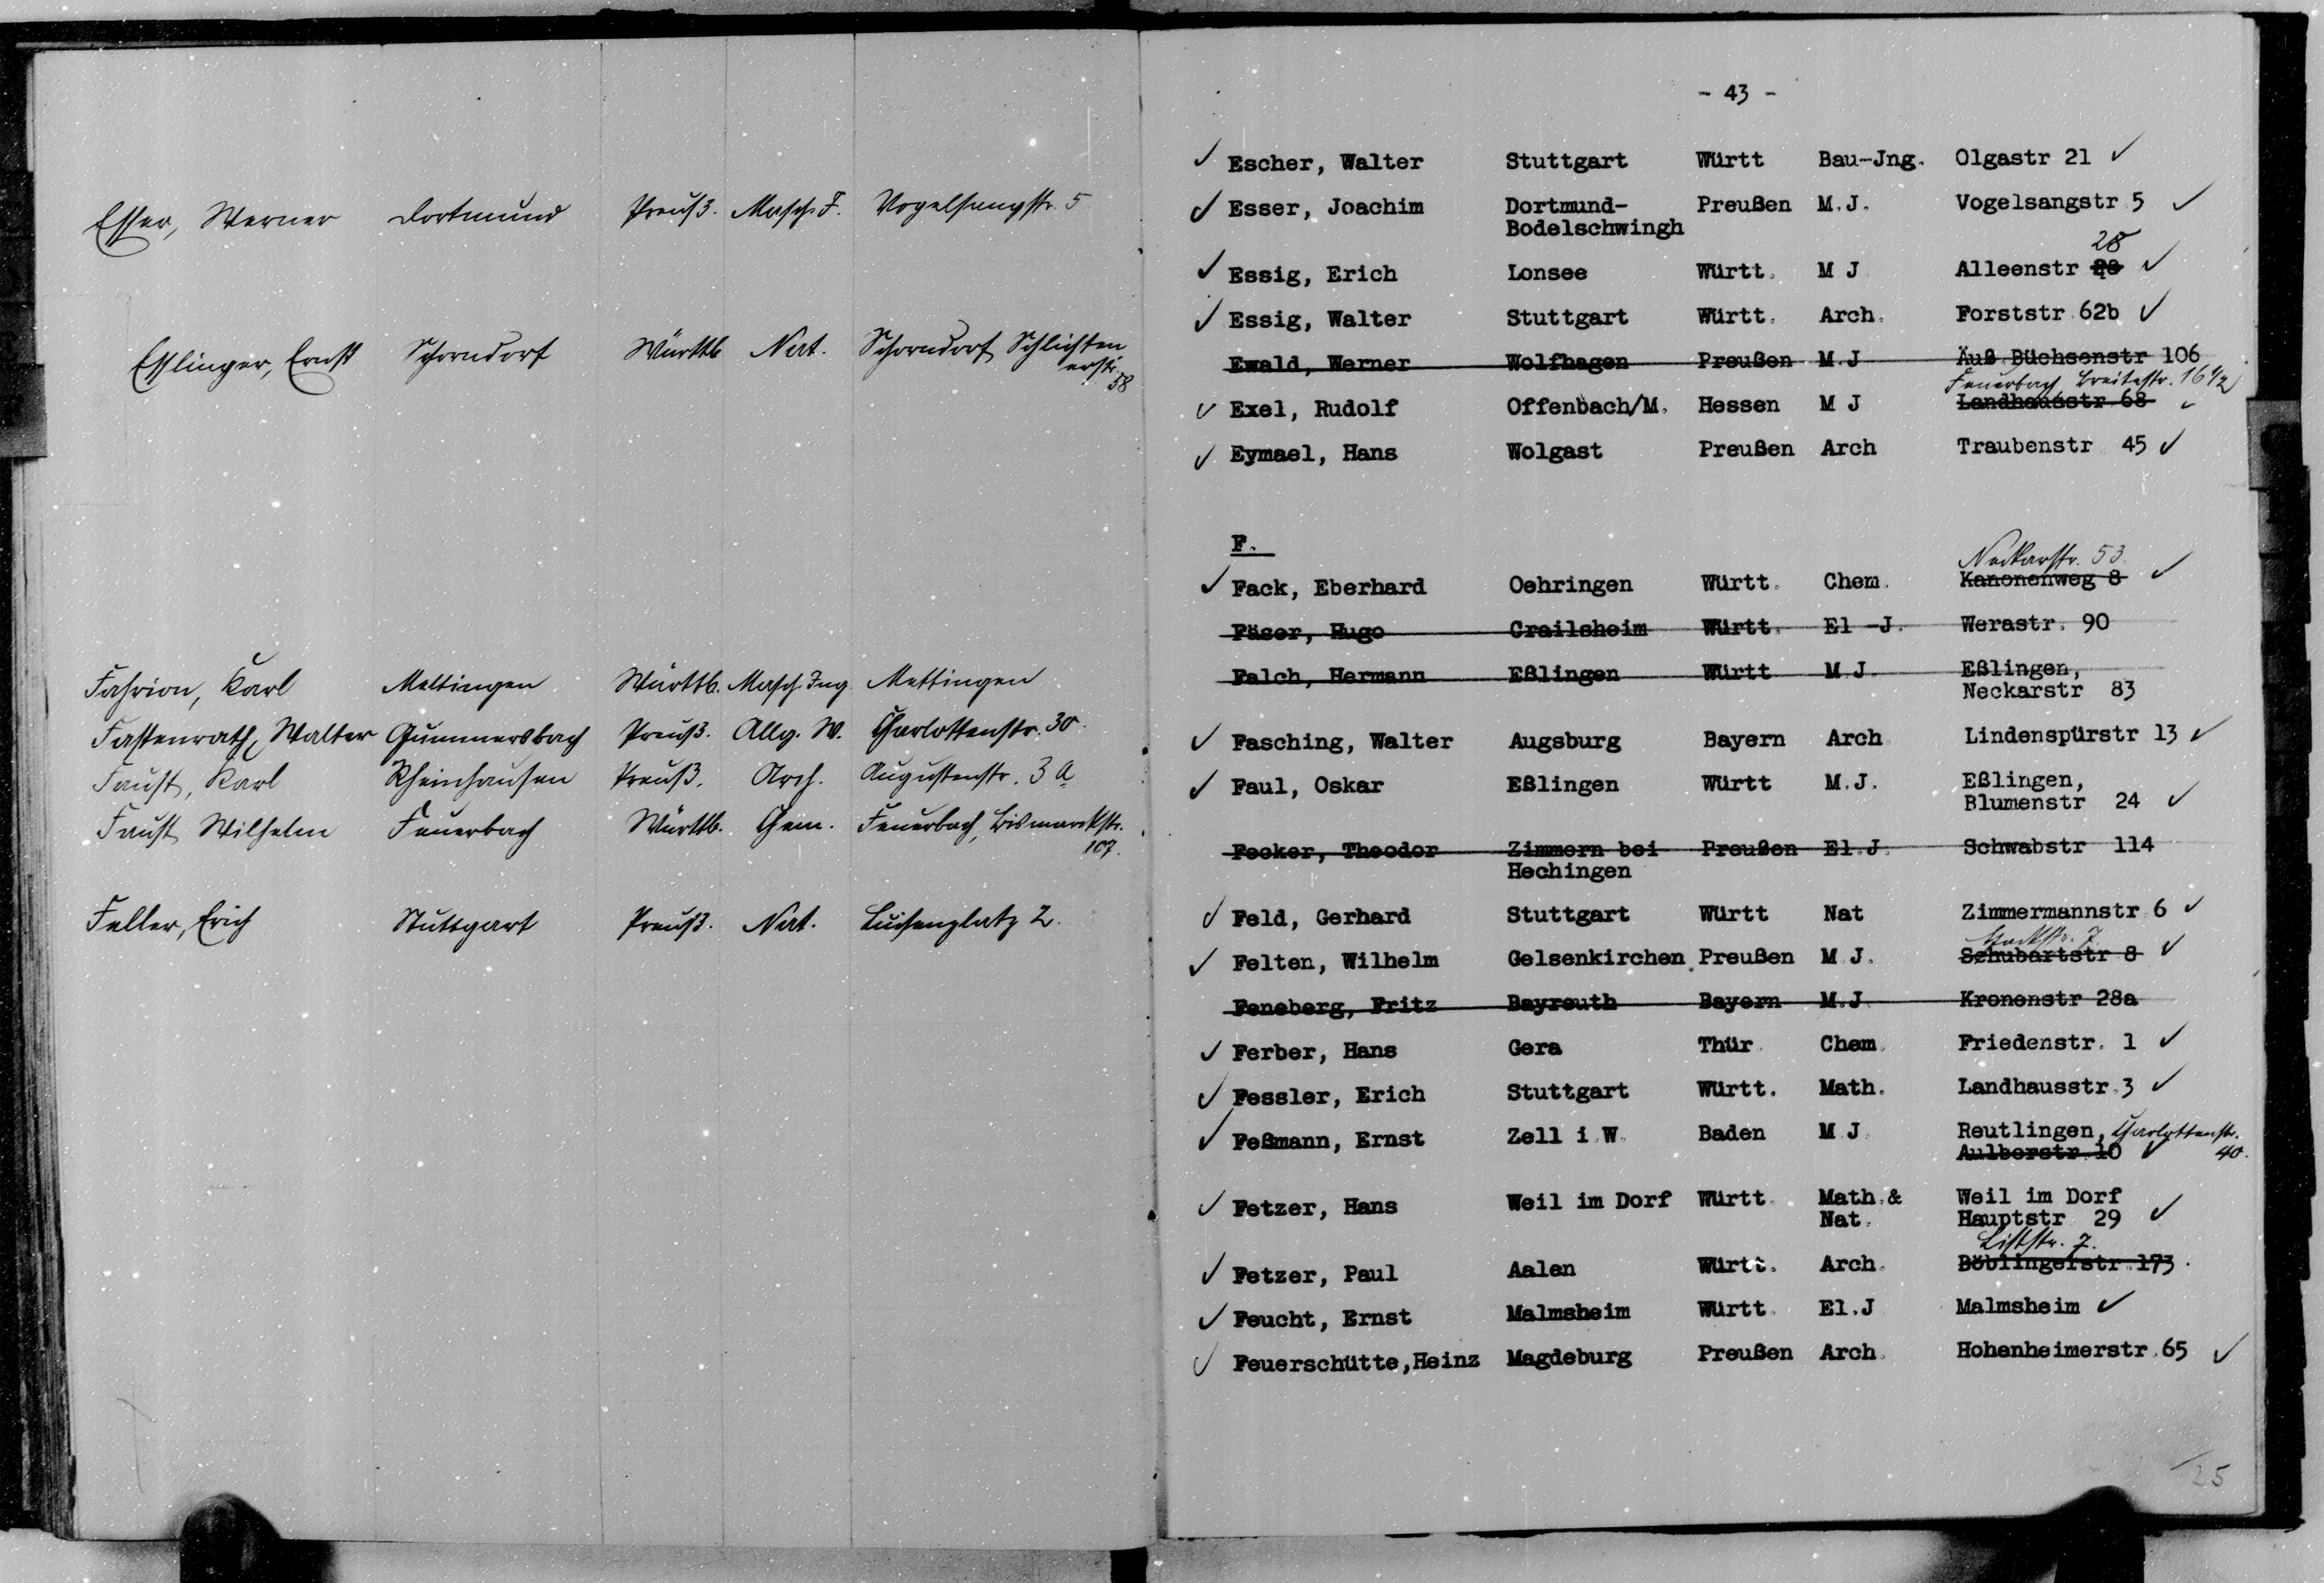 Esser, Werner Dortmund Preuß. Masch. I. Vogelsangstr. 5
Esslinger, Ernst Schorndorf Württb. Nat. Schorndorf Schlichten
erstr.
58
Fahrion, Karl Mettingen Württb. Masch. Ing. Mettingen
Fastenrath, Walter Gummersbach Preuß. Allg. W. Charlottenstr. 30.
Faust, Karl Rheinhausen Preuß. Arch. Augustenstr. 3 A
Faust Wilhelm Feuerbach Württb. Chem. Feuerbach, Bismarckstr.
107.
Feller, Erich Stuttgart Preuß. Nat. Luisenplatz 2.
- 43 -
✓ Escher, Walter Stuttgart Württ Bau-Jng. Olgastr 21 ✓
✓ Esser, Joachim Dortmund- Preußen M.J. Vogelsangstr 5 ✓
Bodelschwingh
28
✓ Essig, Erich Lonsee Württ. M J Alleenstr ✓
✓ Essig, Walter Stuttgart Württ. Arch. Forststr 62b ✓
Ewald, Werner Wolfhagen Preußen M.J Äuß Büchsenstr 106
Feuerbach, Breitestr. 16 1/2
✓ Exel, Rudolf Offenbach/M. Hessen M J Landhausstr 68 ✓
✓ Eymael, Hans Wolgast Preußen Arch Traubenstr 45 ✓
F.
Neckarstr. 53
✓ Fack, Eberhard Oehringen Württ. Chem. Kanonenweg 8 ✓
Fäser, Hugo Crailsheim Württ. El -J. Werastr. 90
Falch, Hermann Eßlingen Württ M J. Eßlingen,
Neckarstr 83
✓ Fasching, Walter Augsburg Bayern Arch Lindenspürstr 13 ✓
✓ Faul, Oskar Eßlingen Württ M.J. Eßlingen,
Blumenstr 24 ✓
Fecker, Theodor Zimmern bei Preußen El.J. Schwabstr 114
Hechingen
✓ Feld, Gerhard Stuttgart Württ Nat Zimmermannstr 6 ✓
7.
✓ Felten, Wilhelm Gelsenkirchen Preußen M J. Schubartstr 8 ✓
Feneberg, Fritz Bayreuth Bayern M.J Kronenstr 28a
✓ Ferber, Hans Gera Thür. Chem. Friedenstr. 1 ✓
✓ Fessler, Erich Stuttgart Württ. Math. Landhausstr.3 ✓
✓ Feßmann, Ernst Zell i.W. Baden M J. Reutlingen, Charlottenstr.
Aulberstr.10 ✓ 40.
✓ Fetzer, Hans Weil im Dorf Württ. Math.& Weil im Dorf
Nat. Hauptstr 29 ✓
Liststr. 7.
✓ Fetzer, Paul Aalen Württ. Arch. Böblingerstr 173.
✓ Feucht, Ernst Malmsheim Württ. El.J Malmsheim ✓
✓ Feuerschütte,Heinz Magdeburg Preußen Arch. Hohenheimerstr.65 ✓
25